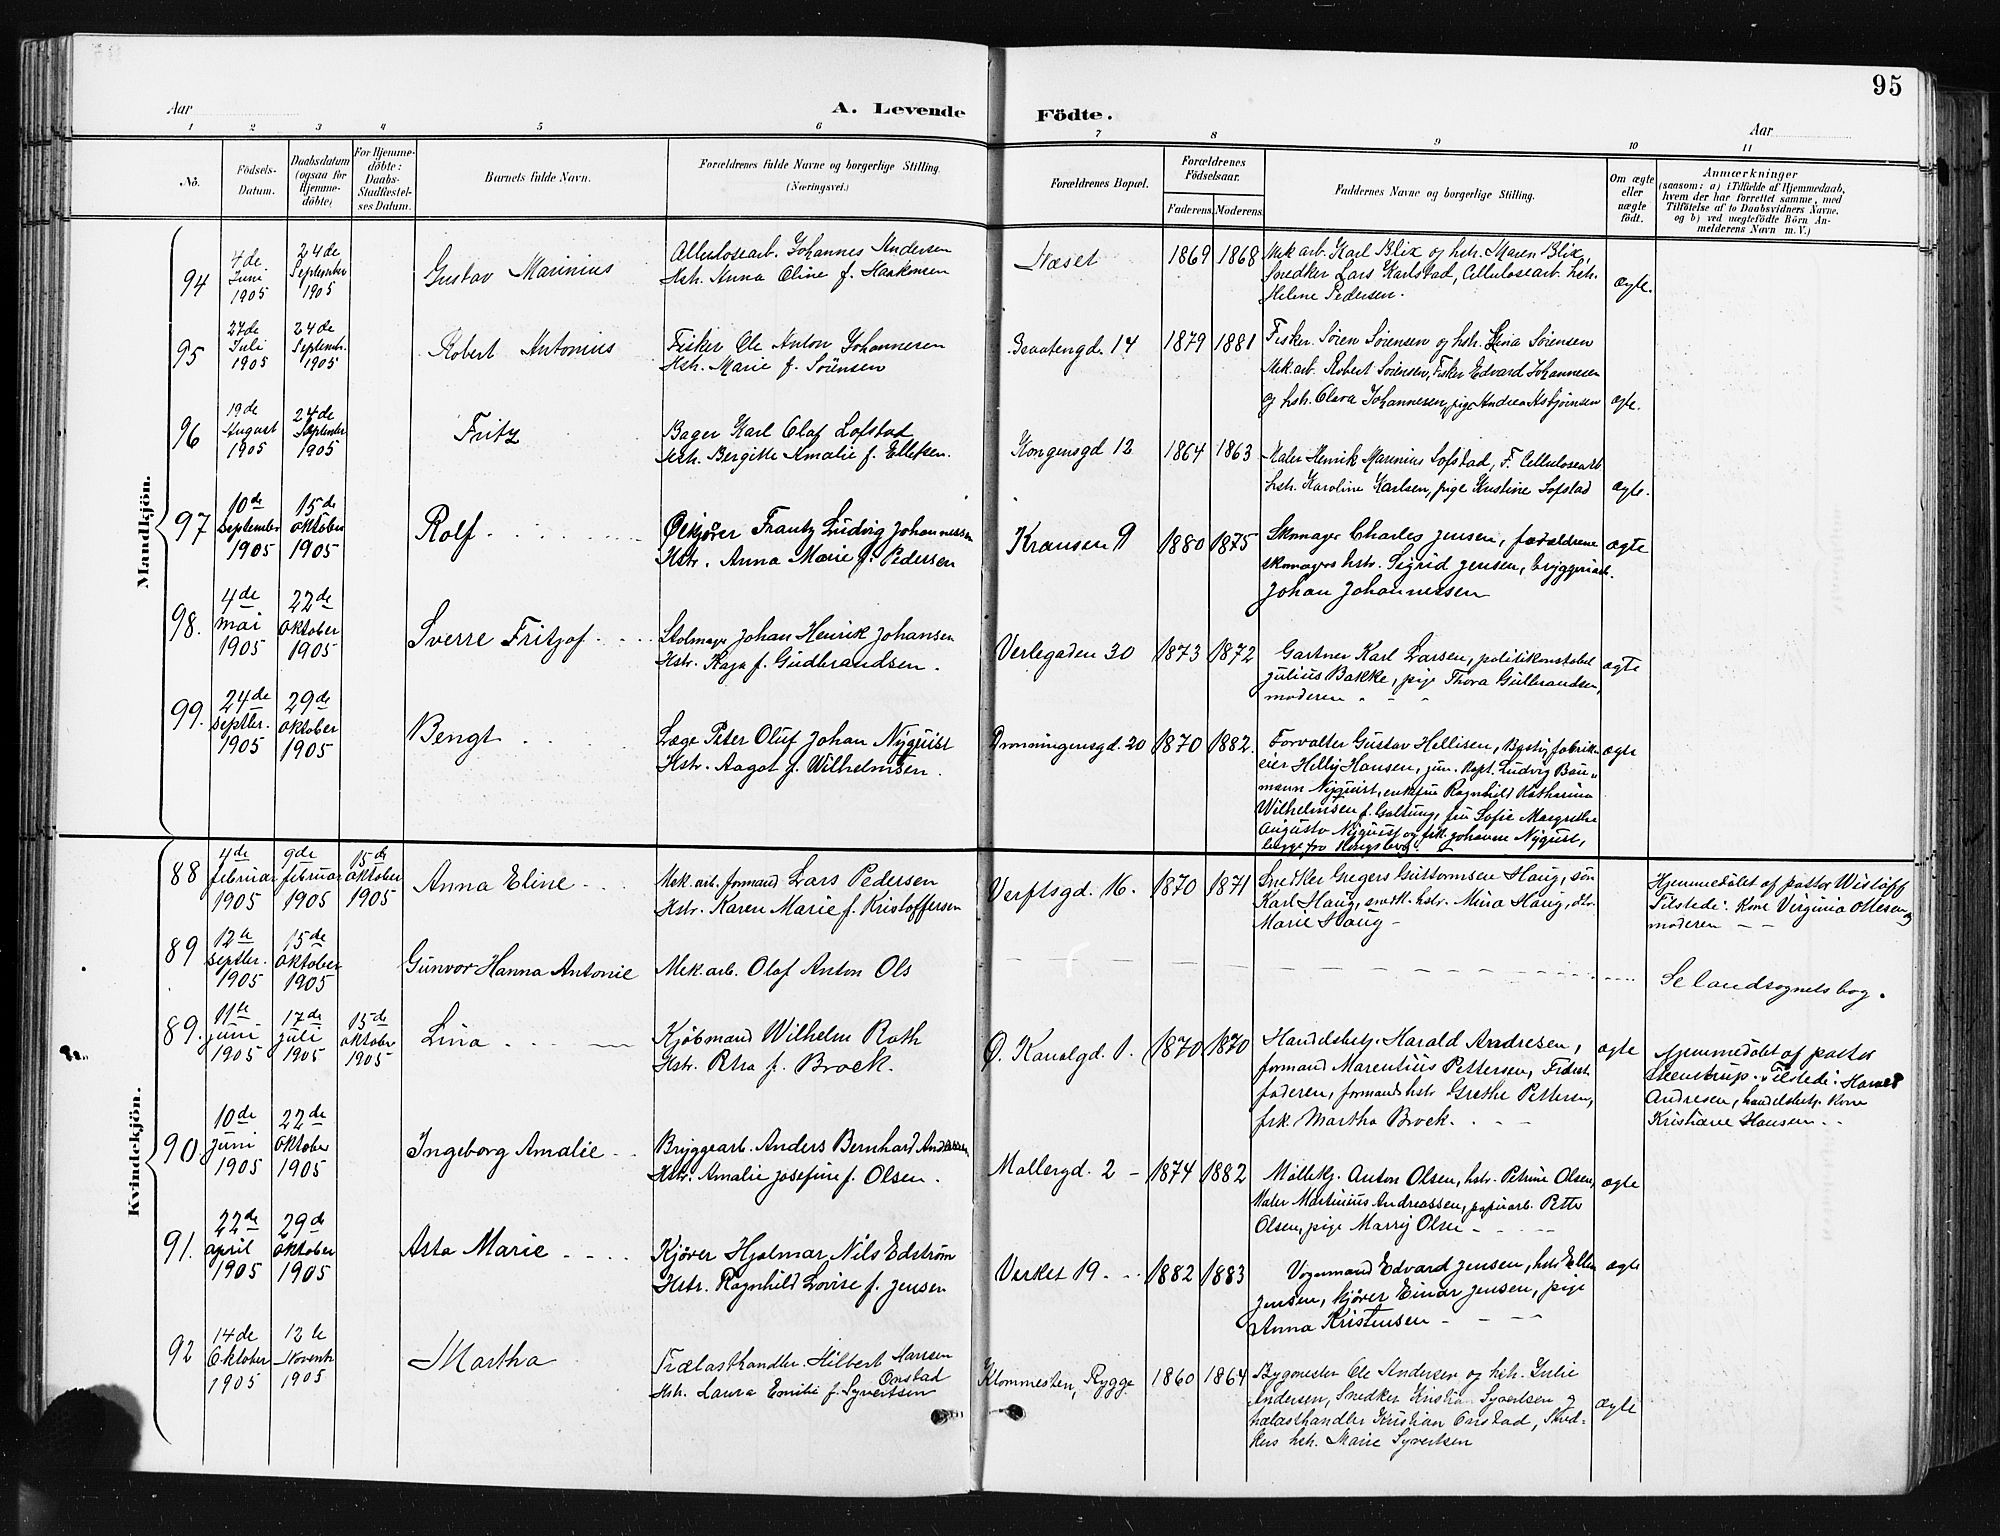 95
Aar
A. Levende
Födte.
Aar
1 2 3 4 5 6 7 8 9 10 11
No.
Födsels-
Datum.
Daabsdatum
(ogsaa for
Hjemme-
döbte)
For Hjemme-
döbte:
Daabs-
Stadfæstel-
ses Datum.
Barnets fulde Navn.
Forældrenes fulde Navne og borgerlige Stilling.
(Næringsvei.)
Forældrenes Bopæl.
Forældrenes
Födselsaar.
Faderens
Moderens
Faddernes Navne og borgerlige Stilling.
Om ægte
eller
uægte
födt.
Anmærkninger
(saasom: a) i Tilfælde af Hjemmedaab,
hvem der har forrettet samme, med
Tilföielse af to Daabsvidners Navne,
og b) ved uægtefödte Börn An-
melderens Navn m. V.)
Mandkjön.
94
4de
Juni
1905
24de
September
1905
Gustav Marinius
Johannes Andersen
Hst. Anna Oline f.
Næset
1869 1868
Mek. arb. Karl Blix og hstr. Maren Blix,
Snedker Lars Karlstad, Cellulosearb. hstr.
Helene Pedersen.
ægte.
95
27de
Juli
1905
24de
Septembr.
1905
Robert Antonius
Fisker Ole Anton Johannesen
Hstr. Marie f. Sørensen
14
1879 1881
Fisker Søren Sørensen og hstr. Lina Sørensen
Mek. arb. Robert Sørensen, Fisker Edvard Johannesen
og hstr. Clara Johannesen, pige Andrea Asbjørnsen
ægte.
96
19de
August
1905
24de
September
1905
Fritz
Bager Karl Olaf Lofstad
Hstr. Bergitte Amalie f. Ellefsen.
Kongensgd 12
1864 1863
Maler Henrik Marinius Lofstad, F. Cellulosearb.
hstr. Karoline Karlsen, pige Kristine Lofstad
ægte.
97
10de
September
1905
15de
oktober
1905
Rolf
Ølkjører Frantz Ludvig Johannessen
Hstr. Anna Marie f. Pedersen
Kransen 9
1880 1875
Skomager Charles Jensen, forældrene
skomagers hstr. Sigrid Jensen, bryggeriarb.
Johan Johannessen
ægte
98.
4de
mai
1905
22de
oktober
1905
Sverre Fritjof
Stolmager Johan Henrik Johansen
Hstr. Kaja f. Gudbrandsen.
Verlegaden 30
1873 1872
Gartner Karl Larsen, politikonstabel
Julius Bakke, pige Thora Gulbrandsen,
moderen
ægte
99.
24de
septbr.
1905
29de
oktober
1905
Bengt
Læge Peter Oluf Johan Nyquist
Hstr. Aagot f. Wilhelmsen.
Dronningensgd. 20
1870 1882.
Forvalter Gustav Hellisen,
eier Helly Hansen, jun. Kapt. Ludvig Bau-
mann Nyquist, enkefru Ragnhild Katharina
Wilhelmsen f. Galtung, fru Sofie Margrethe
Augusta Nyquist og frk. Johanne Nyquist,
ægte
Kvindekjön.
88
4de
februar
1905
9de
februar
1905
15de
oktober
1905
Anna Eline
Mek. arb. formand Lars Pedersen
Hstr. Karen Marie f. Kristoffersen
Verftsgd. 16.
1870 1871
Snedker Gregers Guttormsen Haug, søn
Karl Haug, snedk. hstr. Mina Haug, dtr.
Marie Haug
Hjemmedøbt af pastor Wisløff
Tilstede: Kone Virginia Ottesen og
moderen
89
12te
septbr.
1905
15de
oktober
1905
Gunvor Hanna Antonie
Mek. arb. Olaf Anton Ols
Se landsognets bog.
89.
11te
juni
1905
17de
juli
1905
15de
oktober
1905
Lina
Kjøbmand Wilhelm Roth
Hstr. Petra f. Brock.
Ø. Kanalgd. 1.
1870 1870
Handelsbetj. Harald Andresen,
formand Marentius Pettersen,
faderen, formands hstr Grethe Pettersen,
frk. Martha Brock.
ægte
Hjemmedøbt af pastor
Steenstrup. Tilstede: Harald
Andresen, handelsbetj. Kone
Kristiane Hansen
90.
10de
juni
1905
22de
oktober
1905
Ingeborg Amalie
Bryggearb. Anders Bernhard Andersen
Hstr. Amalie Josefine f. Olsen.
Møllergd. 2
1874 1882
Anton Olsen, hstr. Petrine Olsen,
Maler Martinius Andreassen, papirarb. Petter
Olsen, pige Marry Olsen
ægte
91.
22de
april
1905
29de
oktober
1905
Asta Marie
Kjører Hjalmar Nils Edstrøm
Hstr. Ragnhild Lovise f. Jensen
Verket 19.
1882 1883
Vognmand Edvard Jensen, hstr Ellen
Jensen, kjører Einar Jensen, pige
Anna Kristensen
ægte
92
14de
Oktober
1905
12te
Novembr
1905
Martha
Trælasthandler. Hilbert Hansen
Onstad
Hstr. Laura Emilie f. Syvertsen
Klommesten, Rygge
1860 1864
Bygmester Ole Andersen og hstr. Julie
Andersen, Snedker Kristian Syvertsen og
trælasthandler Kristian Onstad, Sned-
kers hstr. Marie Syvertsen
ægte